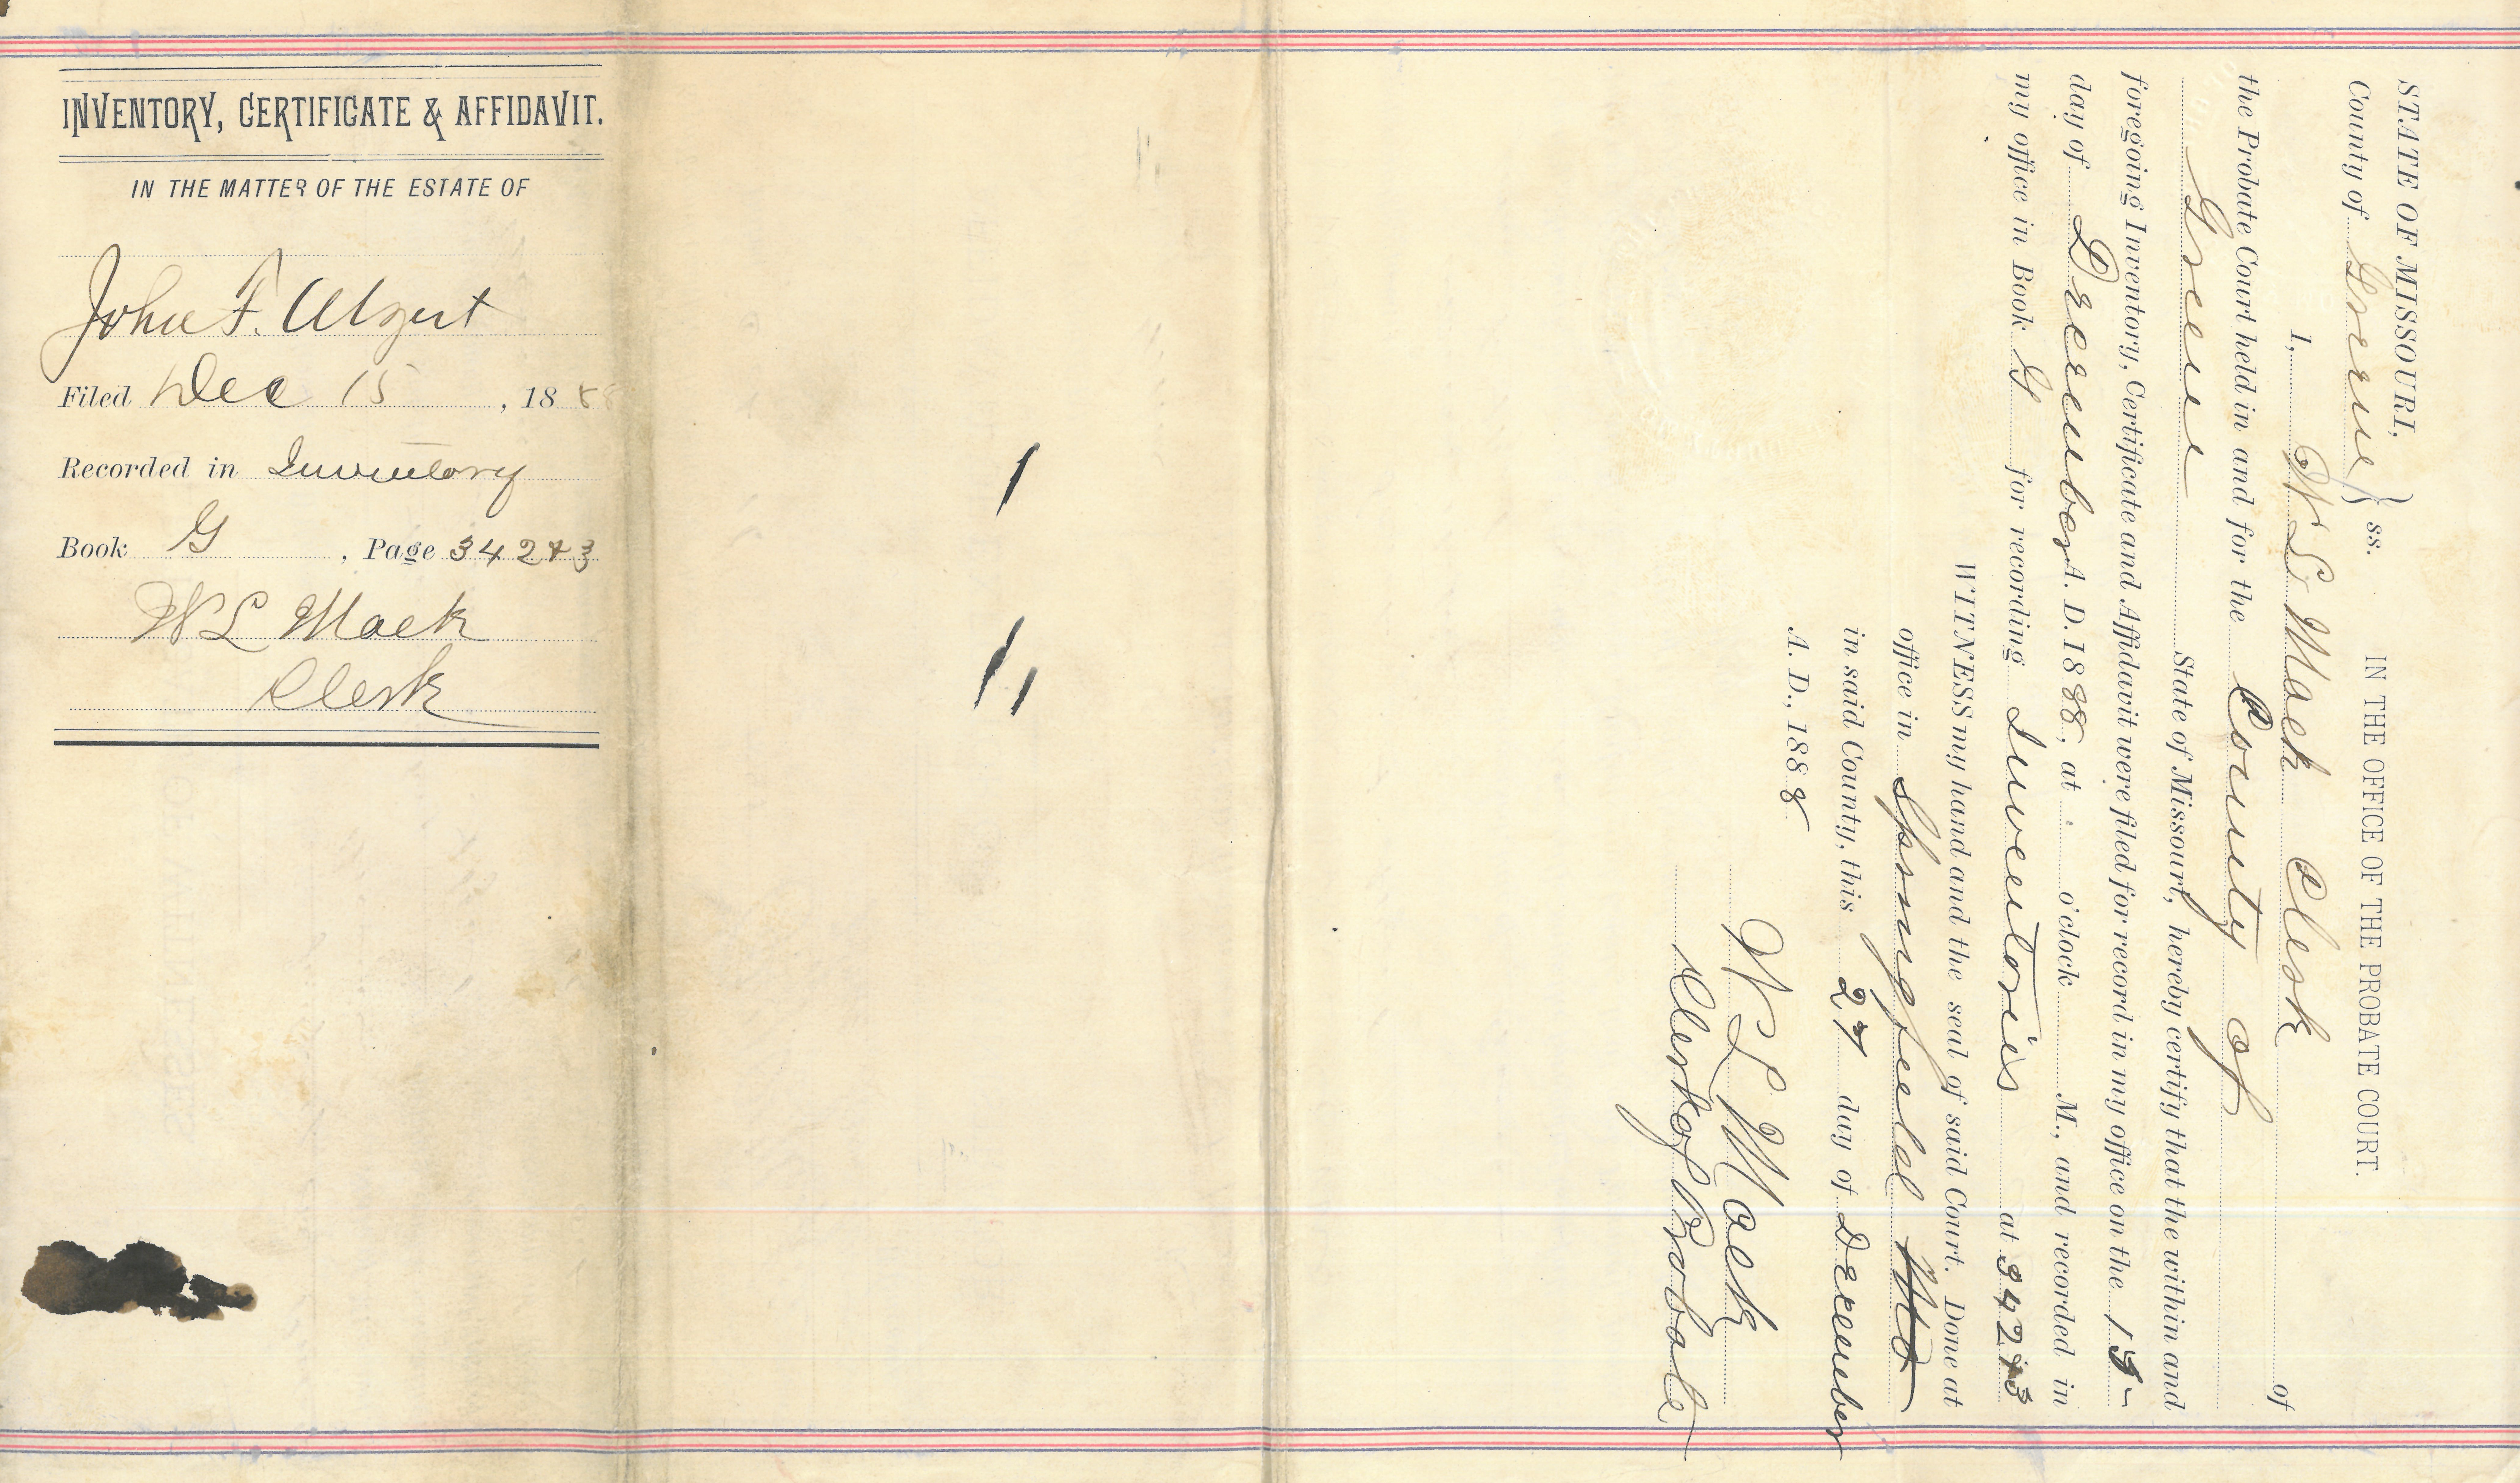 INVENTORY, CERTIFICATE & AFFIDAVIT.
IN THE MATTER OF THE ESTATE OF
John F. Algert
Filed Dec 15, 1888
Recorded in Inventory
Book G, Page 342 & 3
W L Mack
Clerk
STATE OF MISSOURI,
County of Greene } ss. IN THE OFFICE OF THE PROBATE COURT.
I, W L Mack Clerk of
the Probate Court held in and for the County of
Greene State of Missouri, hereby certify that the within and
foregoing Inventory, Certificate and Affidavit were filed for record in my office on the 15
day of December A. D. 1888, at o'clock M., and recorded in
my office in Book G for recording Inventories at 342 & 3
WITNESS my hand and the seal of said Court. Done at
office in Springfield Mo
in said County, this 27 day of December
A. D., 1888
W L Mack
Clerk of Probate